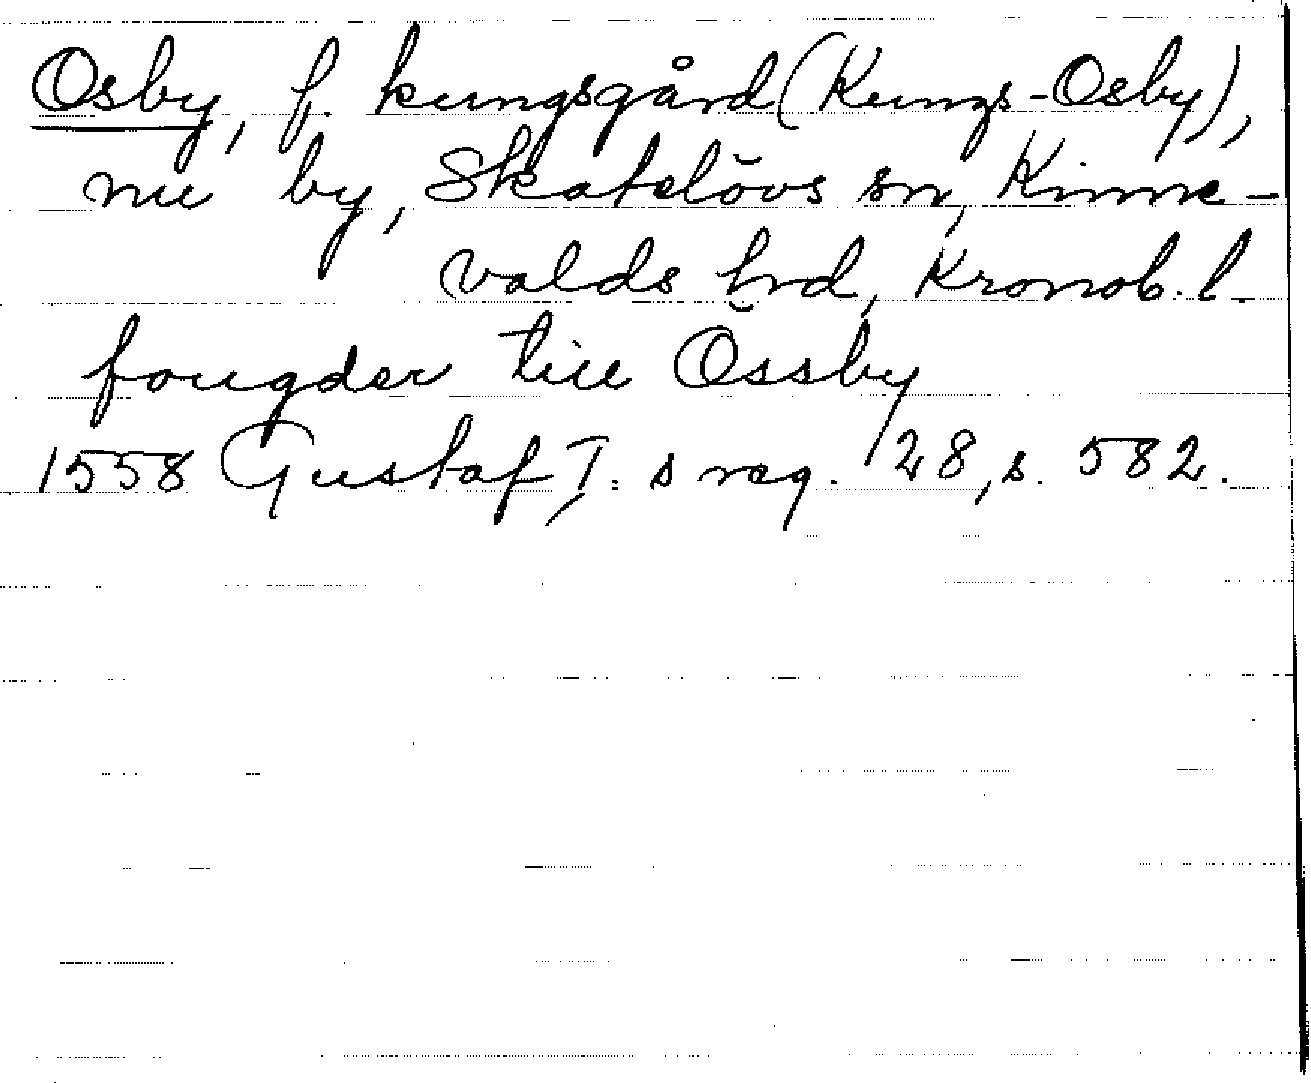 Osby, f. kungsgård (Kungs-Osby),
nu by, Skatelövs sn, Kinne-
valds hrd, Kronob. l.
fougder till Ossby
1558 Gustaf I: s reg. 28, s. 582.